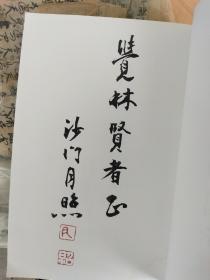 覺林賢者正
沙门月照